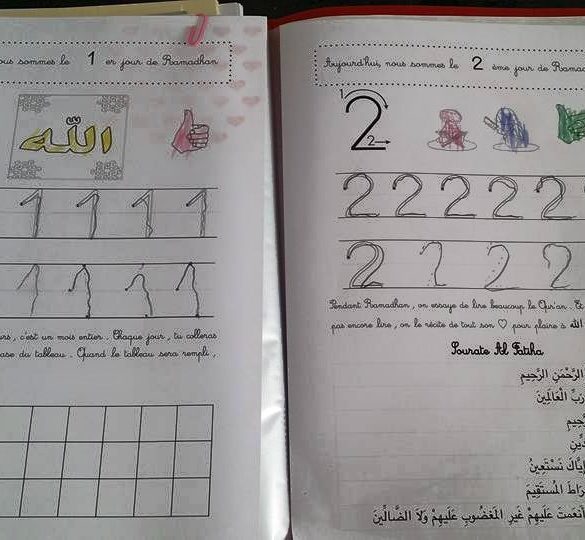 ous sommes le 1 er jour de Ramadhan
الله
1 1 1 1
1 1 1 1
urs, c'est un mois entier. Chaque jour, tu colleras
ase du tableau. Quand le tableau sera rempli,
Aujourd'hui, nous sommes le 2 ème jour de Ramad
1 2 2
2 2 2 2 2
2 2 2 2
Pendant Ramadhan, on essaye de lire beaucoup le Qur'an. Et
pas encore lire, on le récite de tout son ♡ pour plaire à الله
Sourate Al Fatiha
الرَّحْمَنِ الرَّحِيمِ
رَبِّ الْعَالَمِينَ
إِيَّاكَ نَسْتَعِينُ
الْمُسْتَقِيمَ
أَنْعَمْتَ عَلَيْهِمْ غَيْرِ الْمَغْضُوبِ عَلَيْهِمْ وَلَا الضَّالِّينَ